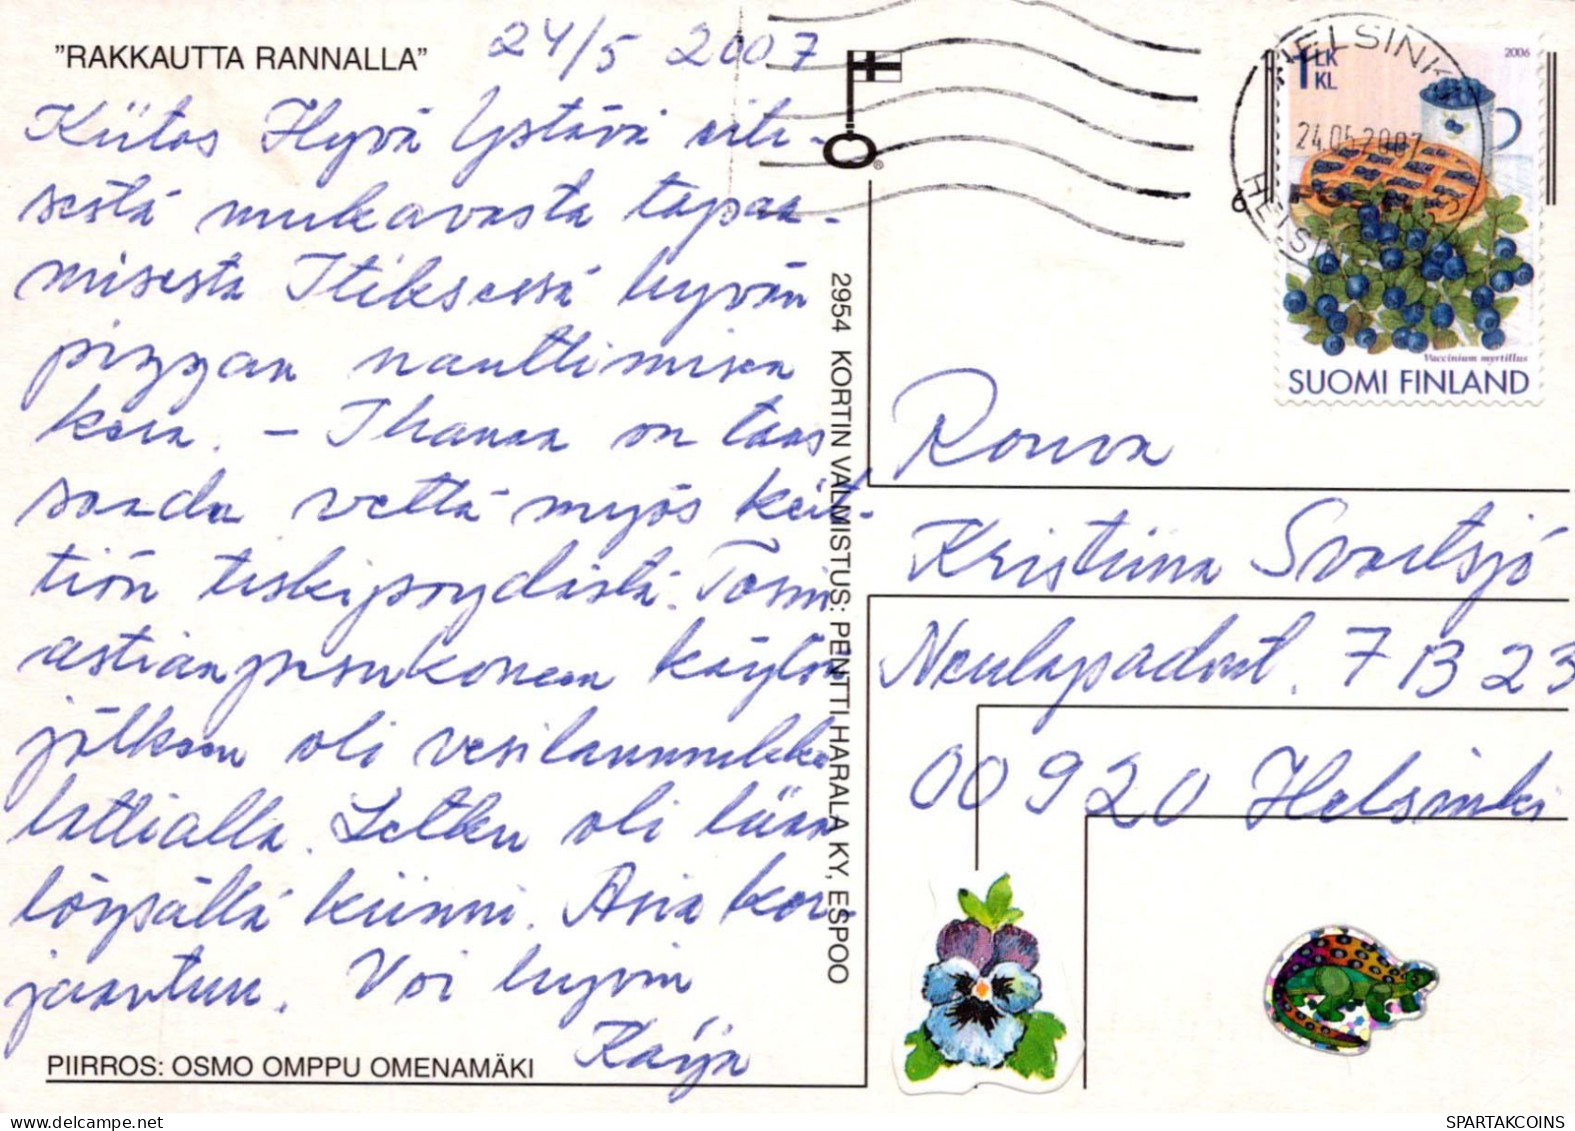 "RAKKAUTTA RANNALLA"
24/5 2007
Kiitos Hyvä Ystävä
sestä mukavasta tapaa-
misesta Itiksessä hyvän
pizzan nauttimisen
kera. – Ihanaa on taas
saada vettä myös keit-
tiön tiskipöydästä. Tosin
astianpesukoneen käytön
jälkeen oli vesilammikko
lattialla. Letku oli liian
löysällä kiinni. Asia kor-
jaantuu. Voi hyvin
Kaija
PIIRROS: OSMO OMPPU OMENAMÄKI
2954 KORTIN VALMISTUS: PENTTI HARALA KY, ESPOO
HELSINKI
24.05.2007
6
1 LK
KL
2006
Vaccinium myrtillus
SUOMI FINLAND
Rouva
Kristiina Svartsjö
Neulapadont. 7 B 23
00920 Helsinki
SPARTAKCOINS.COM